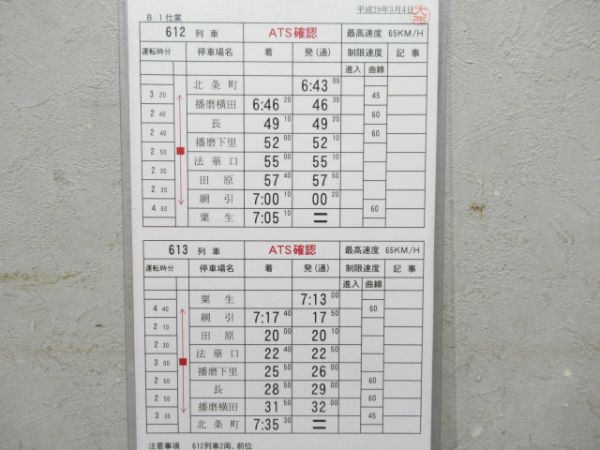 平成29年3月4日
B 1仕業
612 列車 ATS確認 最高速度 65KM/H
運転時分 停車場名 着 発(通) 制限速度 記事
進入 曲線
北条町 6:43 00
3 20 45
播磨横田 6:46 20 46 30
2 40 60
長 49 10 49 20
2 40 60
播磨下里 52 00 52 10
2 50
法華口 55 00 55 10
2 30
田原 57 40 57 50
2 20
網引 7:00 10 00 20
4 50 60
粟生 7:05 10 =
613 列車 ATS確認 最高速度 65KM/H
運転時分 停車場名 着 発(通) 制限速度 記事
進入 曲線
粟生 7:13 00
4 40 60
網引 7:17 40 17 50
2 10
田原 20 00 20 10
2 30
法華口 22 40 22 50
3 00
播磨下里 25 50 26 00
2 50
長 28 50 29 00
2 50 60
播磨横田 31 50 32 00
3 30 45
北条町 7:35 30 =
注意事項 612列車2両、前位